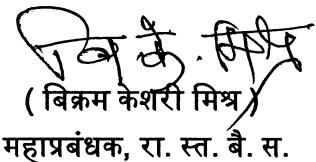 बि के. मिश्र
( बिक्रम केशरी मिश्र )
महाप्रबंधक, रा. स्त. बै. स.